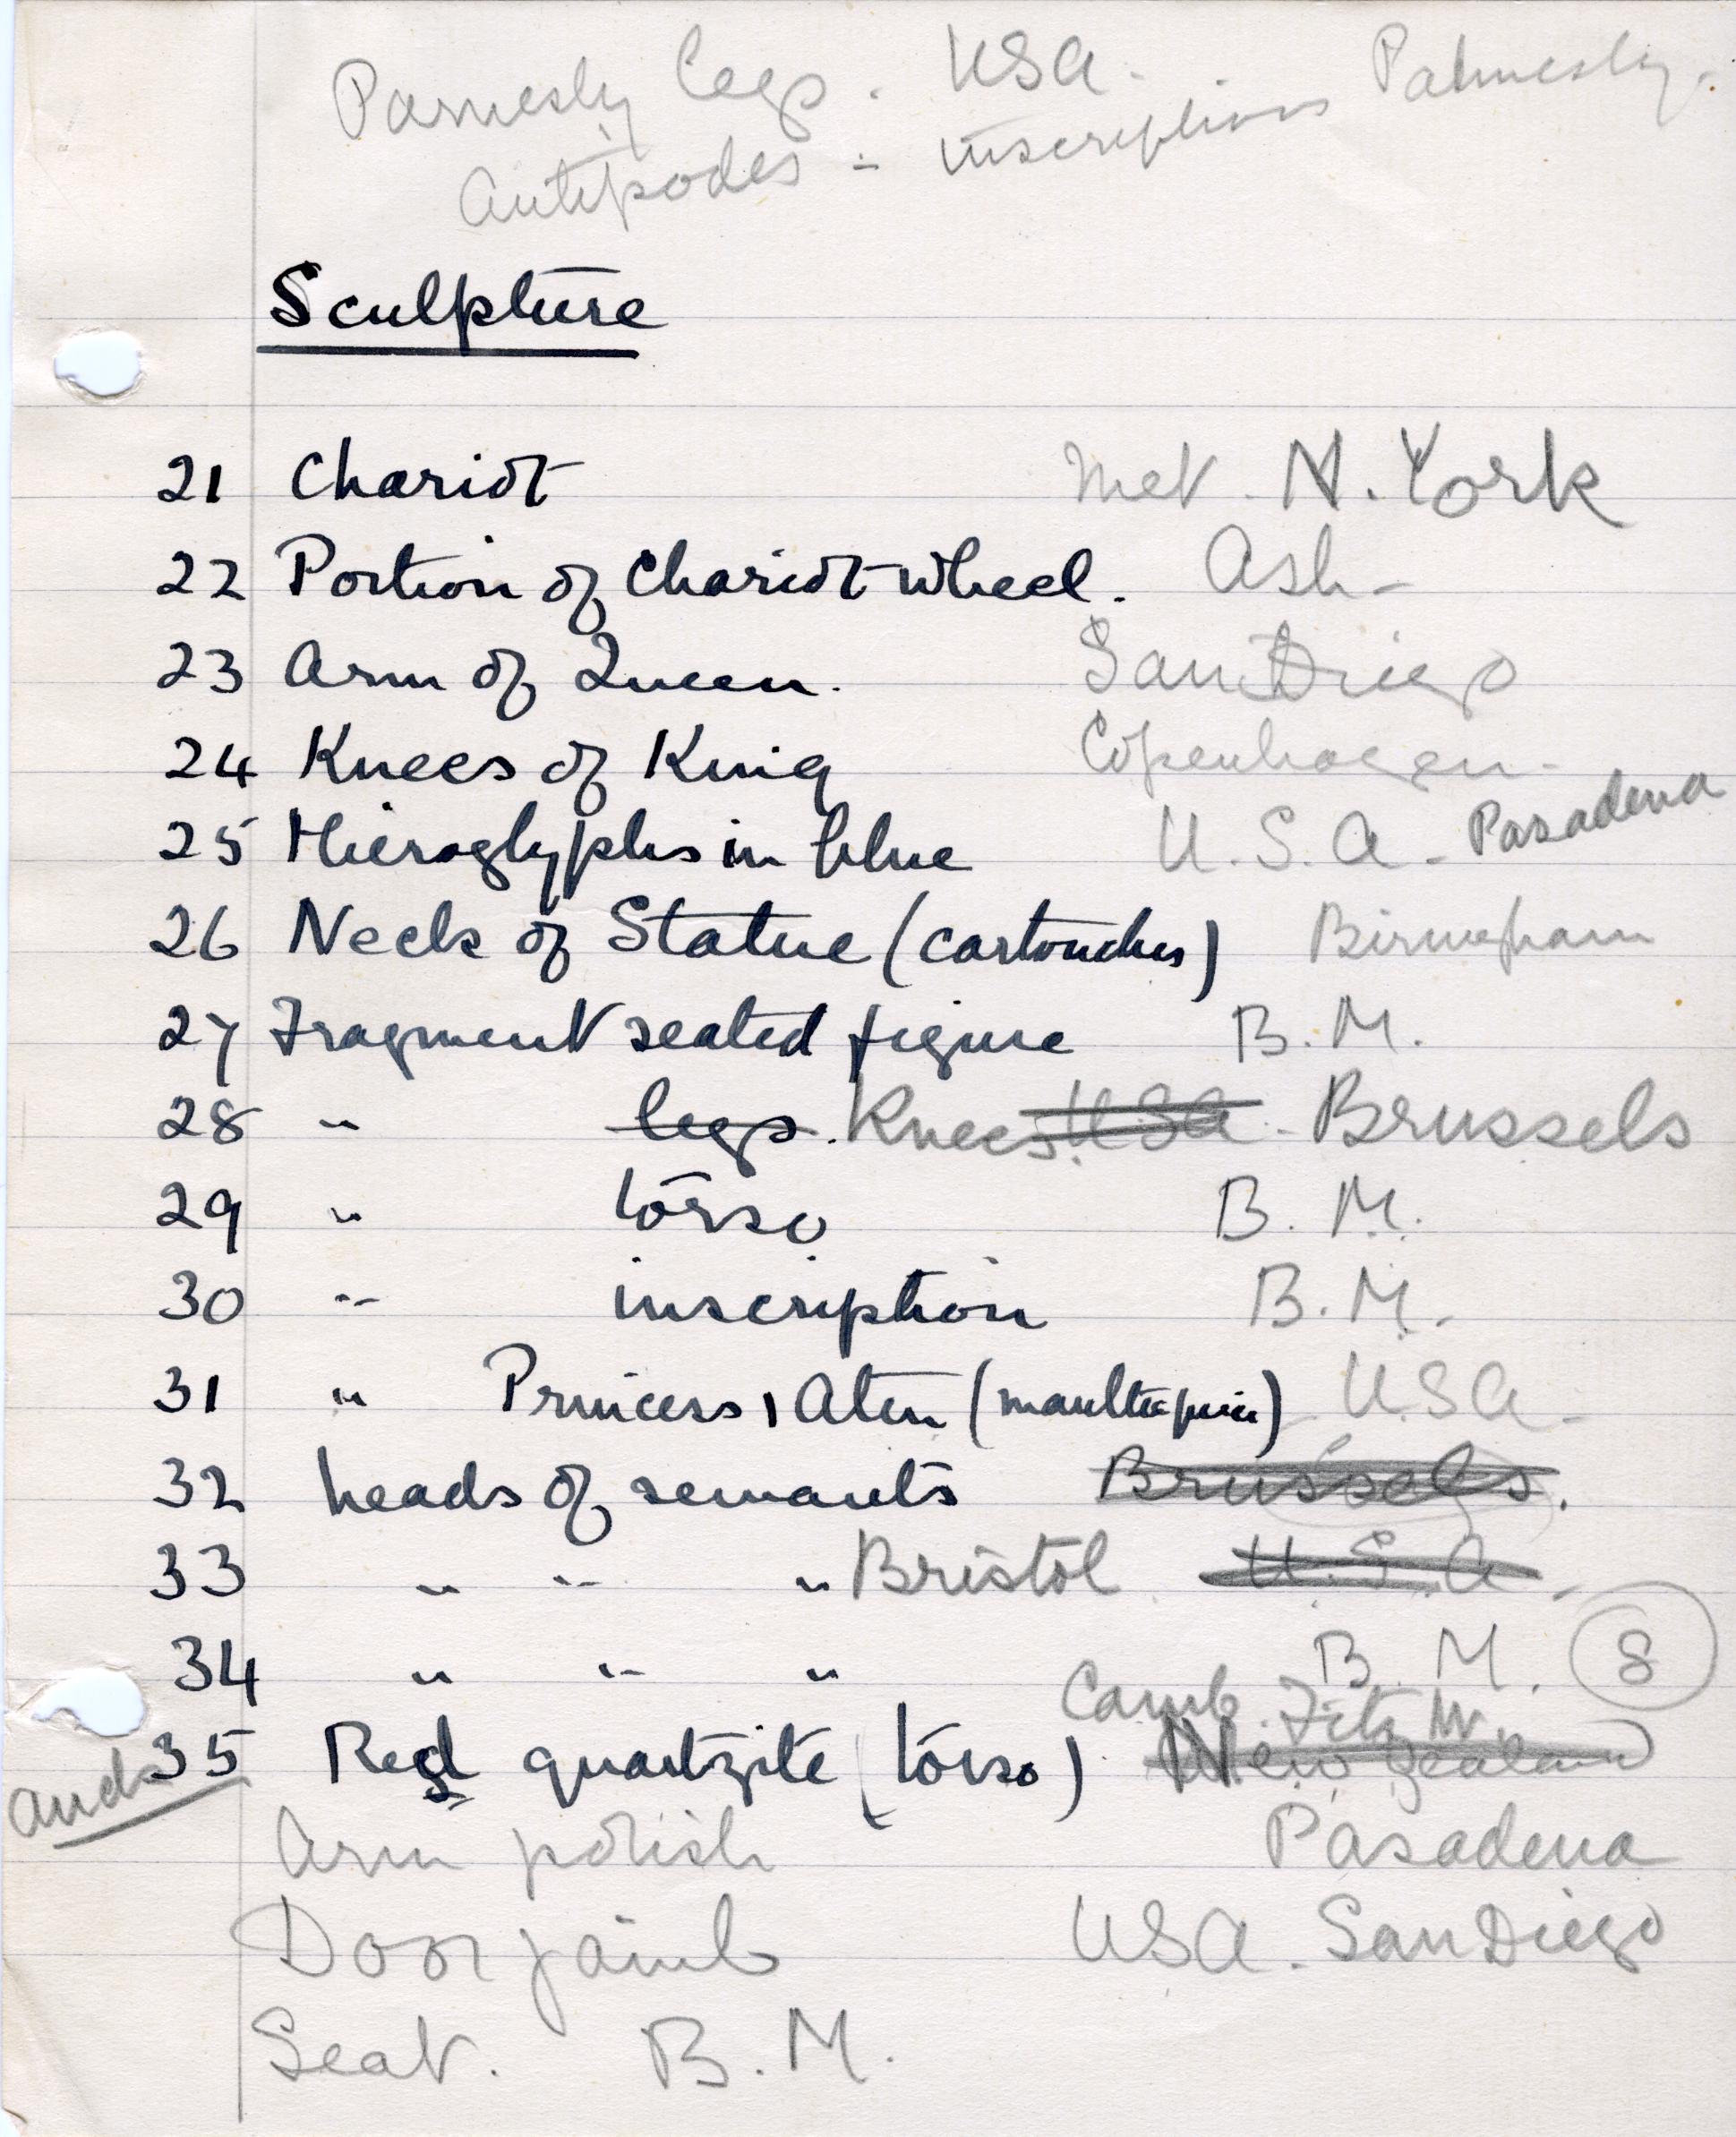 Legs. USA. Palmesly.
Antipodes - inscriptions
Sculpture
21 Chariot Met. N. York
22 Portion of Chariot wheel. Ash-
23 Arm of Queen. San Diego
24 Knees of King Copenhagen-
25 Hieroglyphs in blue U.S.A - Pasadena
26 Neck of Statue (cartouches) Birmgham
27 Fragment seated figure B.M.
28 " legs. Knees. USA - Brussels
29 " torso B. M.
30 " inscription B.M.
31 " Princess, Aten (mantlepiece) USA-
32 heads of servants Brussels.
33 " " " Bristol U.S.A-
34 " " " B. M. 8
Camb. Fitz W.
and 35 Red quartzite (torso) New Zealand
Arm polish Pasadena
Door jamb USA. San Diego
Seat. B.M.